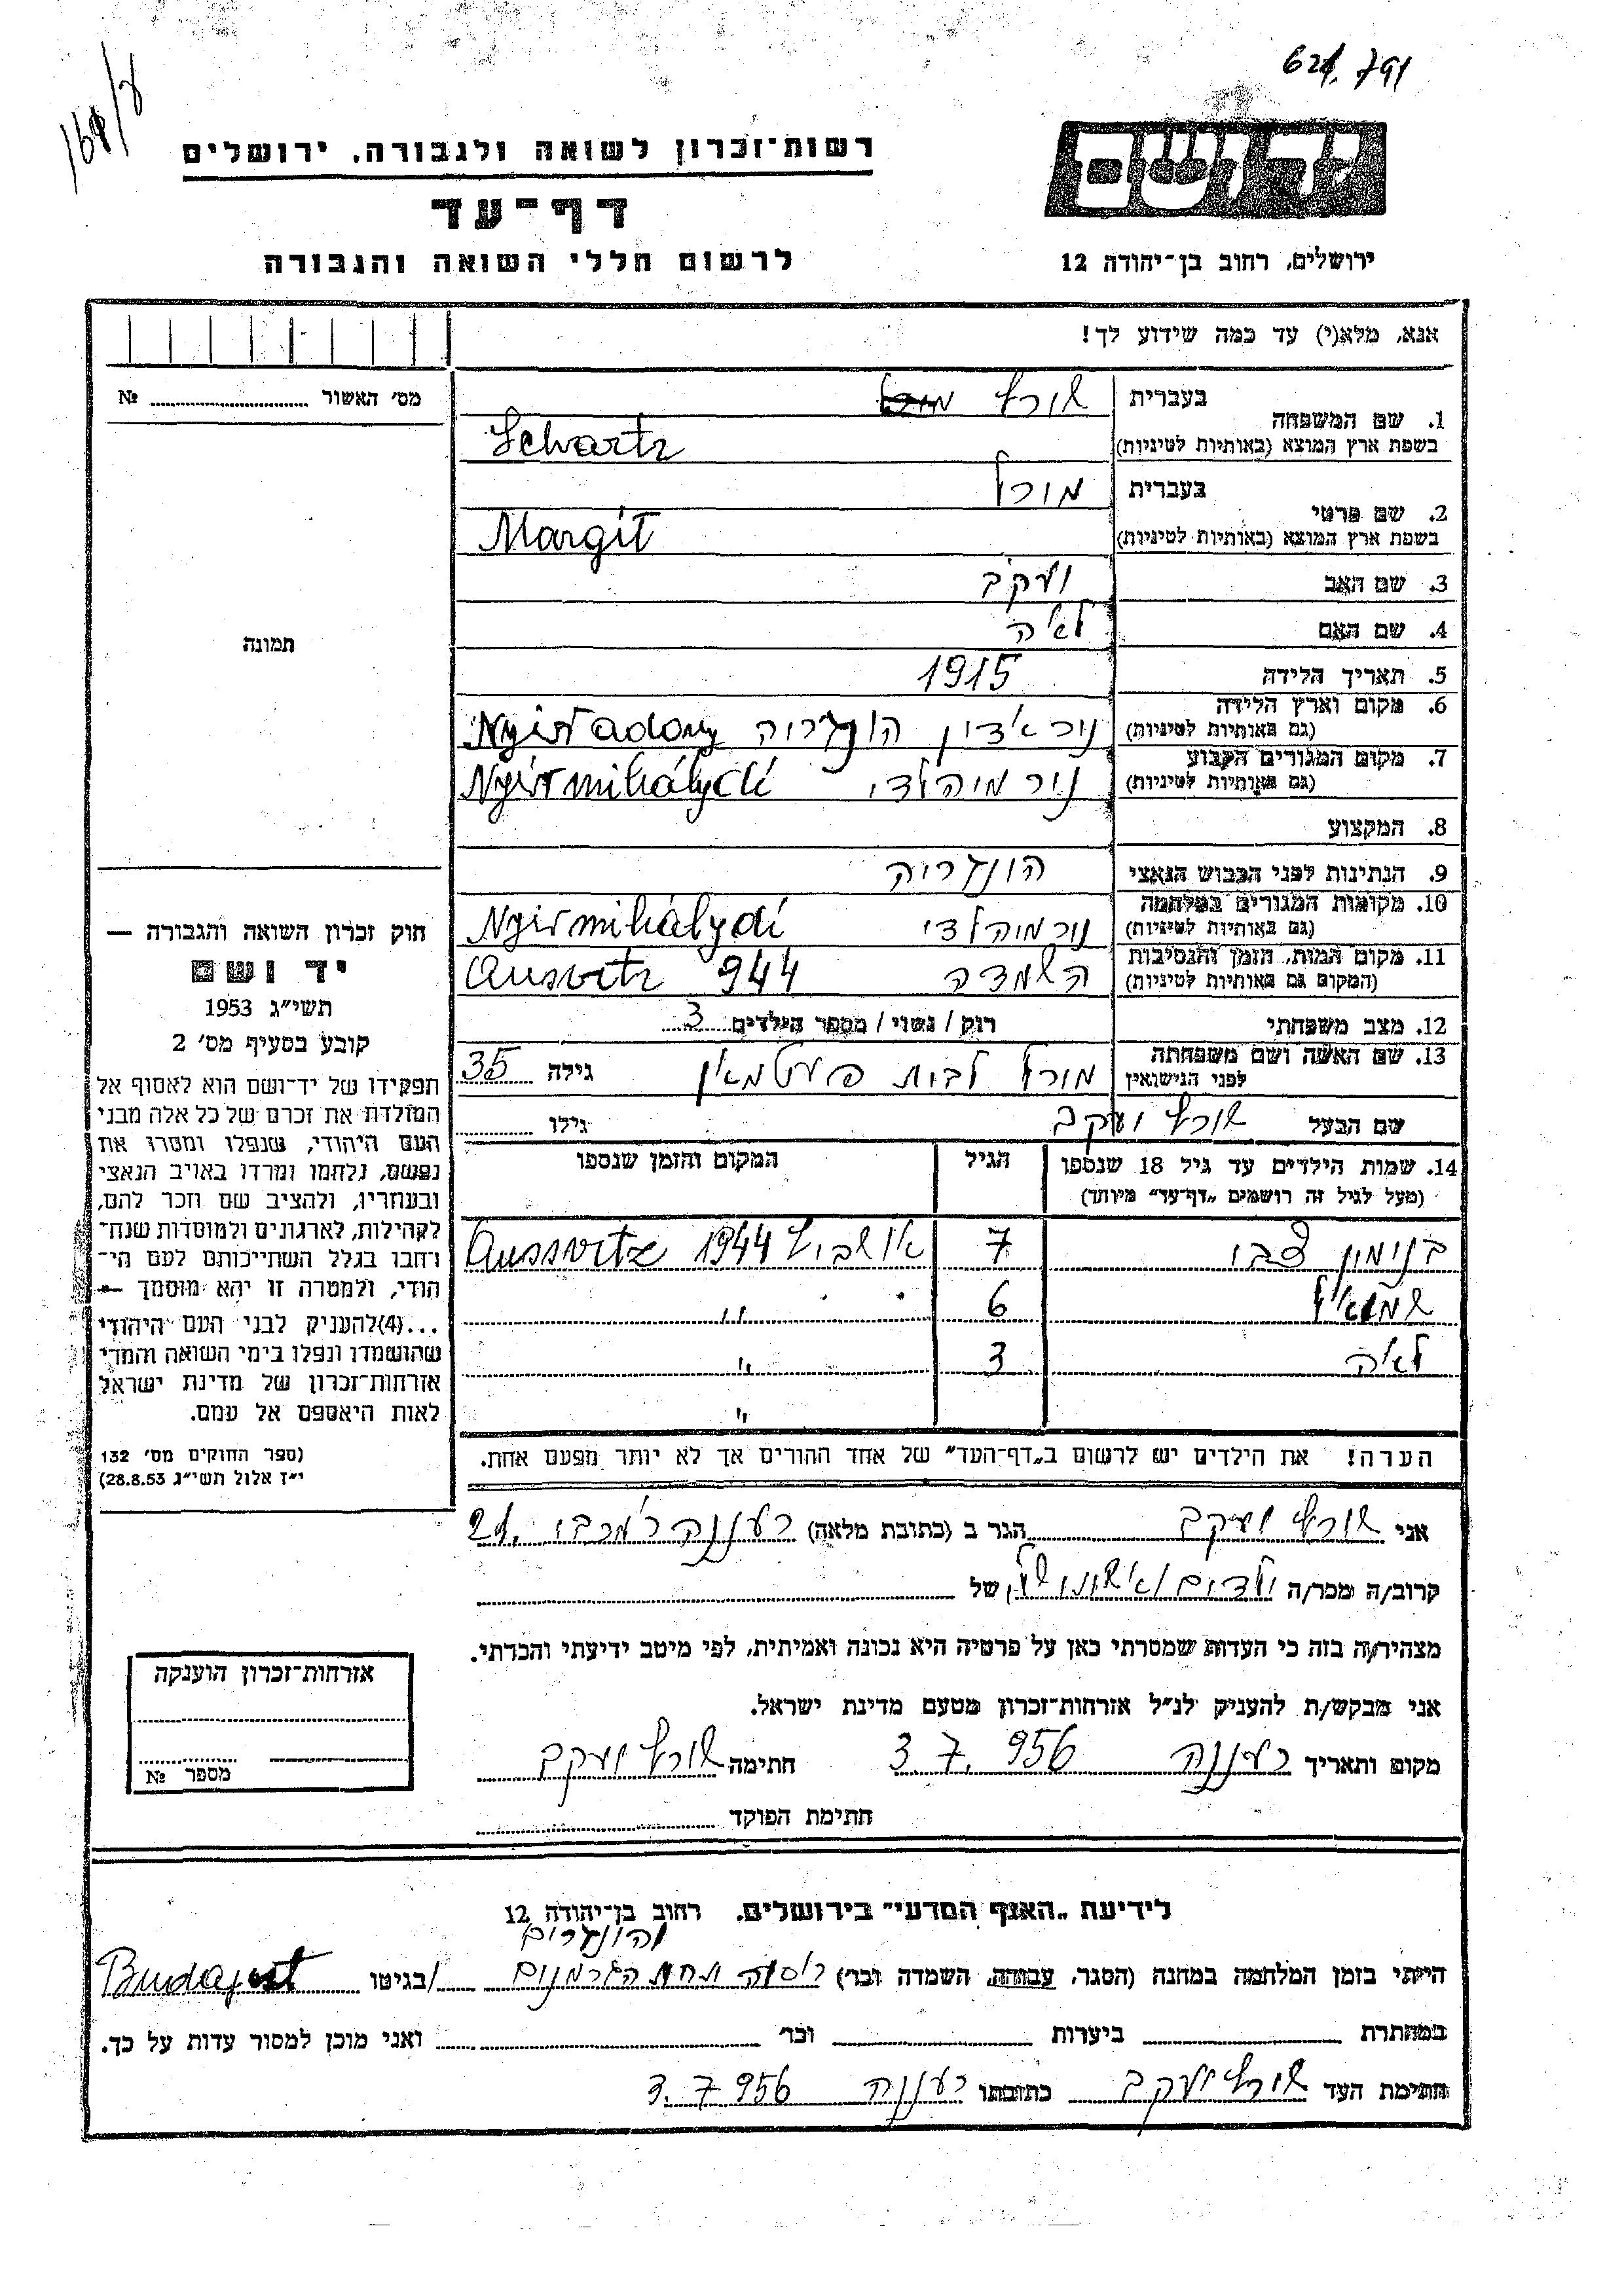 621.791
168/8
יד ושם
רשות־זכרון לשואה ולגבורה, ירושלים
דף־עד
לרשום חללי השואה והגבורה
ירושלים, רחוב בן־יהודה 12
אנא, מלא(י) עד כמה שידוע לך!
מס׳ האשור № 
תמונה
חוק זכרון השואה והגבורה —
יד ושם
תשי״ג 1953
קובע בסעיף מס׳ 2
תפקידו של יד־ושם הוא לאסוף אל
המולדת את זכרם של כל אלה מבני
העם היהודי, שנפלו ומסרו את
נפשם, נלחמו ומרדו באויב הנאצי
ובעוזריו, ולהציב שם וזכר להם,
לקהילות, לארגונים ולמוסדות שנח־
רבו בגלל השתייכותם לעם הי־
הודי, ולמטרה זו יהא מוסמך —
...(4)להעניק לבני העם היהודי
שהושמדו ונפלו בימי השואה והמרי
אזרחות־זכרון של מדינת ישראל
לאות היאספם אל עמם.
(ספר החוקים מס׳ 132
י״ז אלול תשי״ג 28.8.53)
1. שם המשפחה בעברית שורץ
בשפת ארץ המוצא (באותיות לטיניות) Schvartz
2. שם פרטי בעברית מורל
בשפת ארץ המוצא (באותיות לטיניות) Margit
3. שם האב יעקב
4. שם האם לאה
5. תאריך הלידה 1915
6. מקום וארץ הלידה (גם באותיות לטיניות) ניר אדון הונגריה Nyiradony
7. מקום המגורים הקבוע (גם באותיות לטיניות) ניר מיהלדי Nyirmihálydi
8. המקצוע
9. הנתינות לפני הכבוש הנאצי הונגריה
10. מקומות המגורים במלחמה (גם באותיות לטיניות) נירמיהלדי Nyirmihálydi
11. מקום המות, הזמן והנסיבות (המקום גם באותיות לטיניות) השמדה 944 Aussvitz
12. מצב משפחתי רוק / נשוי / מספר הילדים 3
13. שם האשה ושם משפחתה לפני הנישואין מורל לבית גילה 35
שם הבעל שורץ יעקב גילו
14. שמות הילדים עד גיל 18 שנספו הגיל המקום והזמן שנספו
(מעל לגיל זה רושמים „דף־עד״ מיוחד)
בנימין צבי 7 אושביץ 1944 Aussvitz
שמואל 6 ״
לאה 3 ״
״
הערה! את הילדים יש לרשום ב„דף־העד״ של אחד ההורים אך לא יותר מפעם אחת.
אני שורץ יעקב הגר ב (כתובת מלאה) רעננה 21.
קרוב/ה מכר/ה של
מצהיר/ה בזה כי העדות שמסרתי כאן על פרטיה היא נכונה ואמיתית, לפי מיטב ידיעתי והכרתי.
אני מבקש/ת להעניק לנ״ל אזרחות־זכרון מטעם מדינת ישראל.
מקום ותאריך רעננה 3.7.956 חתימה שורץ יעקב
חתימת הפוקד
אזרחות־זכרון הוענקה
מספר №
לידיעת „האגף המדעי״ בירושלים, רחוב בן־יהודה 12
והונגרים
הייתי בזמן המלחמה במחנה (הסגר, עבודה, השמדה וכו׳) רוסיה תחת הגרמנים /בגיטו Budapest
במחתרת ביערות וכו׳ ואני מוכן למסור עדות על כך.
חתימת העד שורץ יעקב כתובתו רעננה 3.7.956